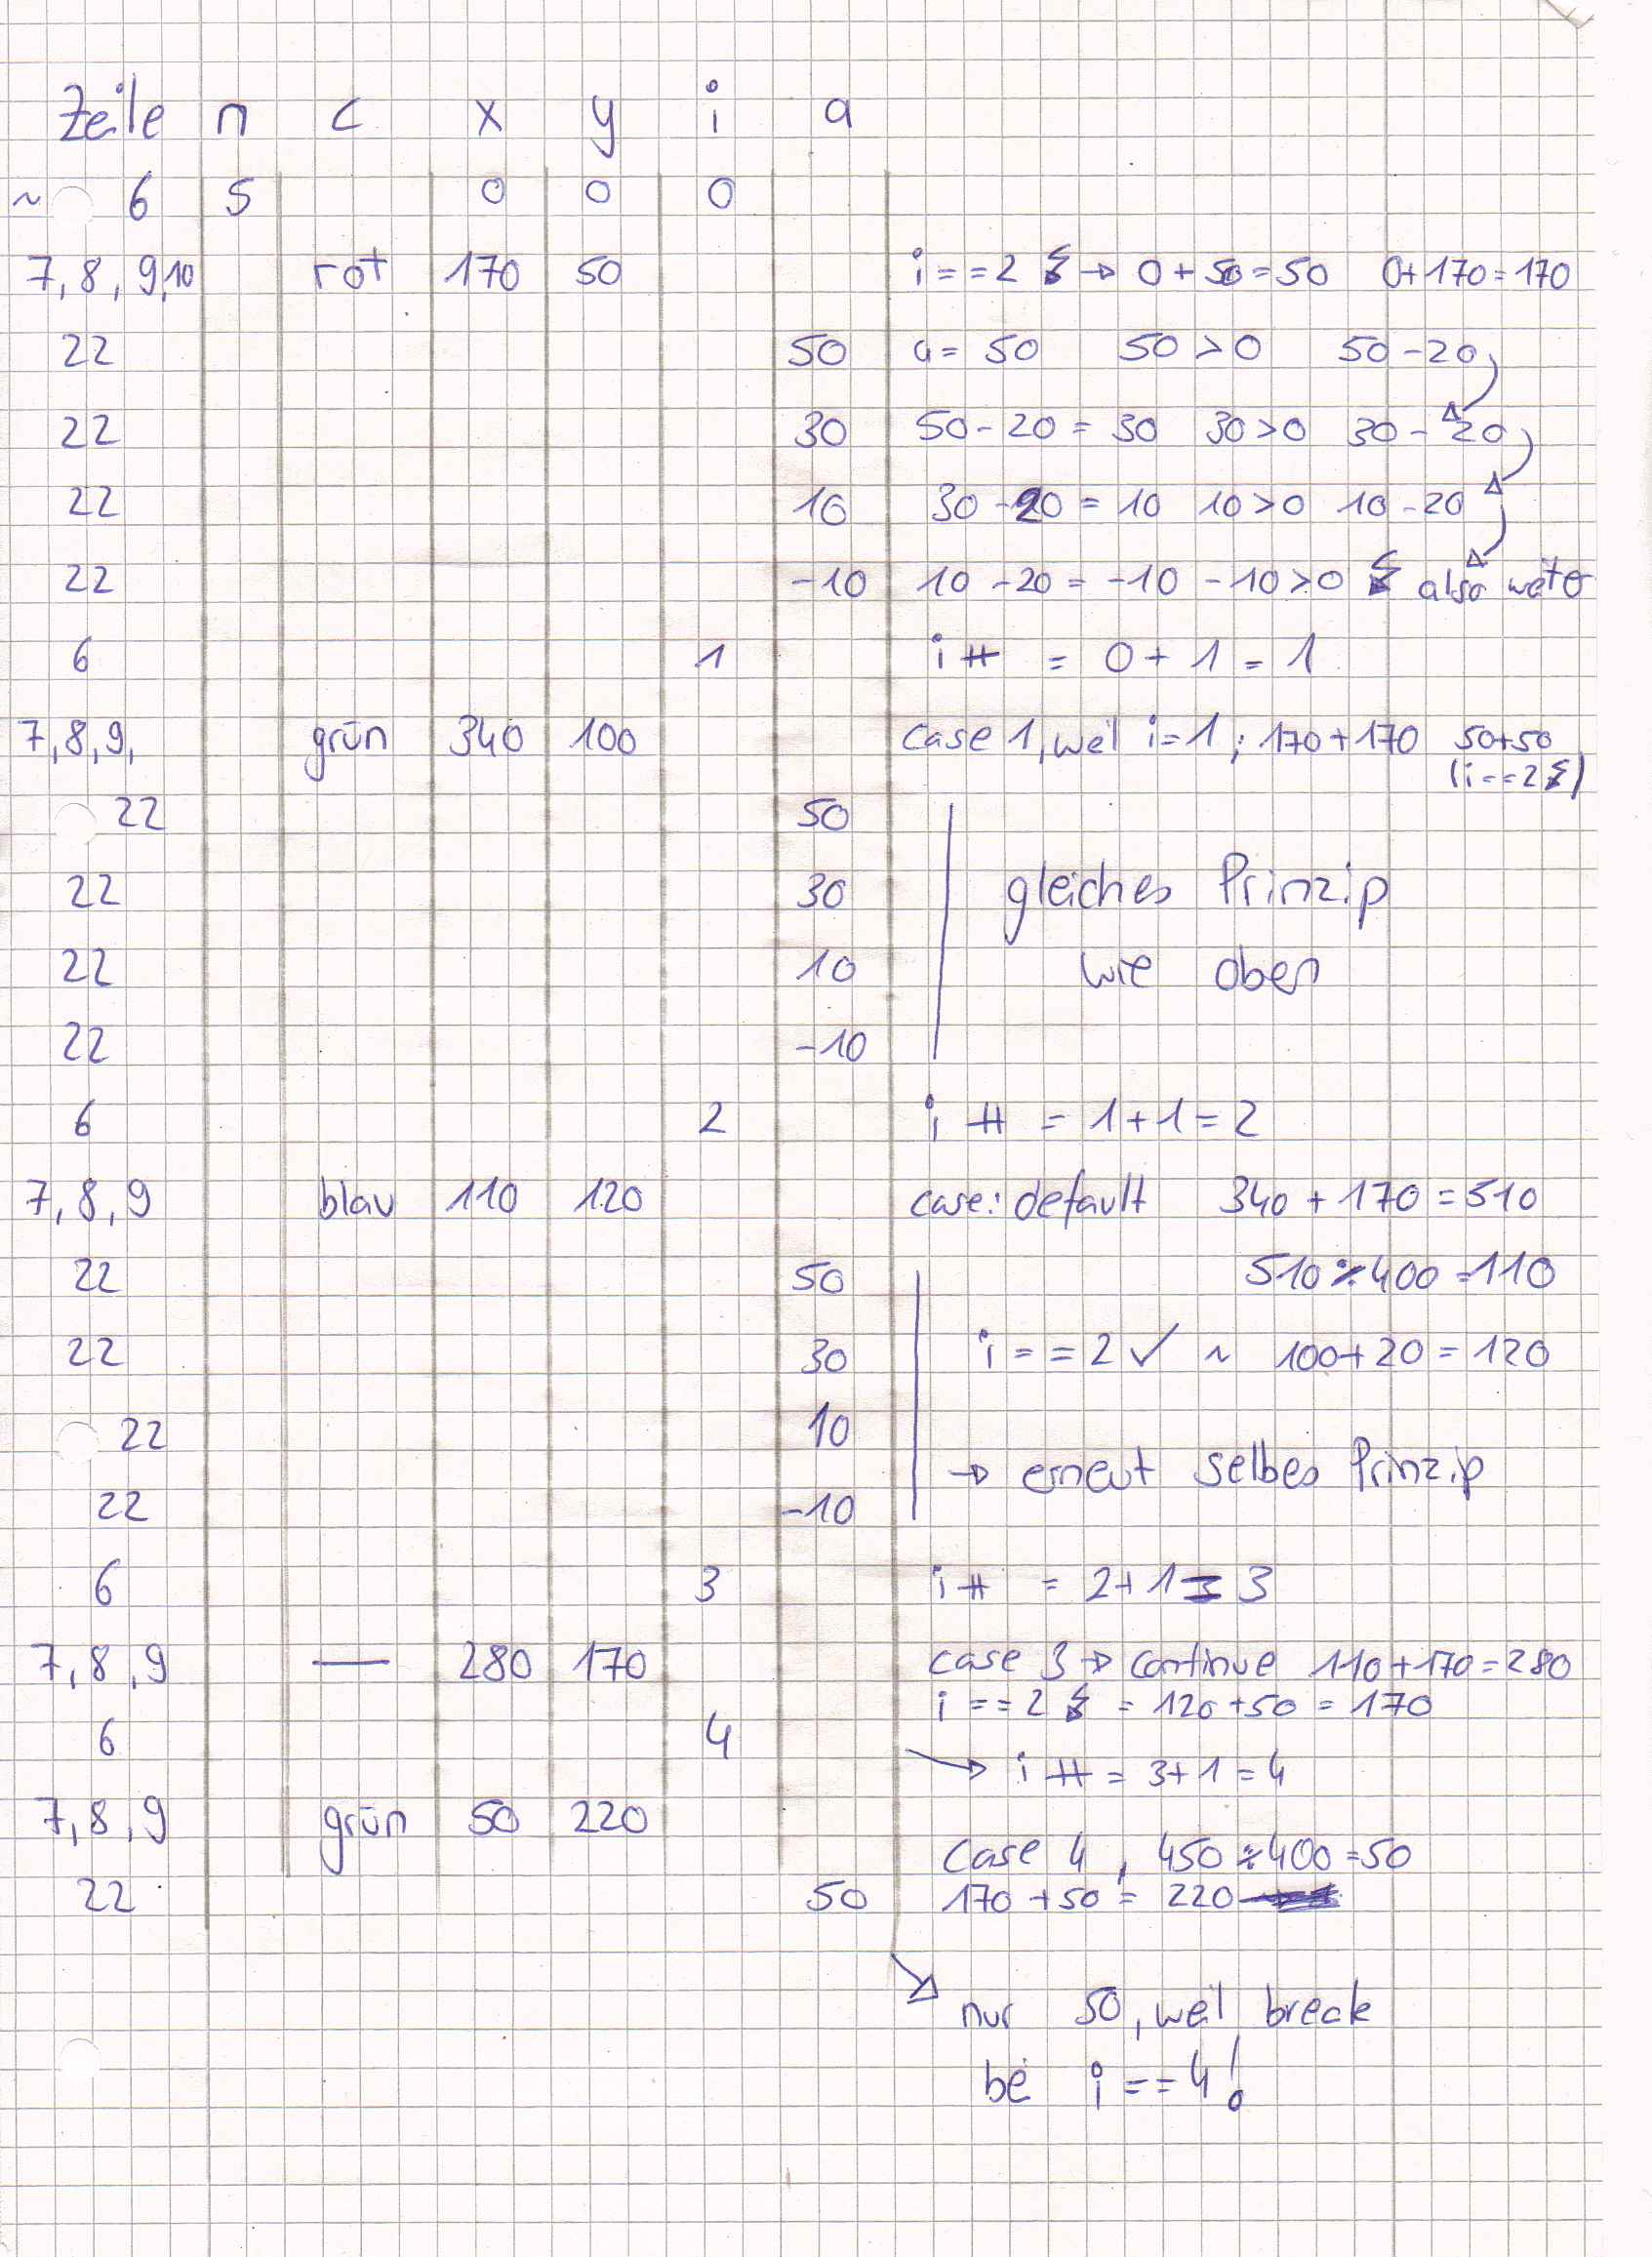 Zeile n c x y i a
~ 6 5 0 0 0
7, 8, 9, 10 rot 170 50 i==2 ↯ → 0+50=50 0+170=170
22 50 a= 50 50>0 50-20
22 30 50-20=30 30>0 30-20
22 10 30-20=10 10>0 10-20
22 -10 10-20=-10 -10>0 ↯ also weiter
6 1 i++ = 0+1=1
7, 8, 9, grün 340 100 case 1, weil i=1; 170+170 50+50
(i==2↯)
22 50
22 30 gleiches Prinzip
22 10 wie oben
22 -10
6 2 i++ = 1+1=2
7, 8, 9 blau 110 120 case: default 340+170=510
22 50 510%400=110
22 30 i==2 ✓ ~ 100+20=120
22 10
22 -10 → erneut selbes Prinzip
6 3 i++ = 2+1=3
7, 8, 9 — 280 170 case 3 → continue 110+170=280
i==2 ↯ = 120+50=170
6 4
→ i++ = 3+1=4
7, 8, 9 grün 50 220
case 4, 450%400=50
22 50 170+50=220
→ nur 50, weil break
bei i==4!